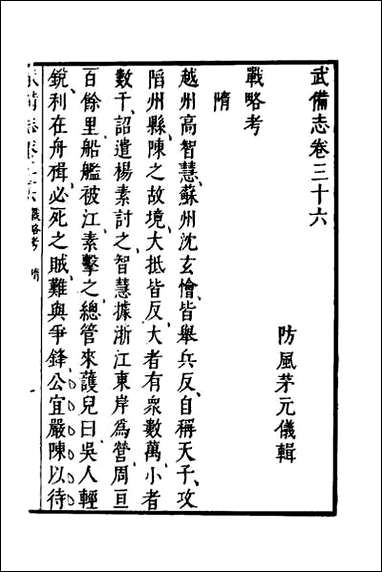 武備志卷三十六
防風茅元儀輯
戰略考
隋
越州高智慧蘇州沈玄懀皆舉兵反自稱天子攻
陷州縣陳之故境大抵皆反大者有衆數萬小者
數千詔遣楊素討之智慧據浙江東岸爲營周亘
百餘里船艦被江素擊之總管來護兒曰吳人輕
銳利在舟楫必死之賊難與爭鋒公宜嚴陳以待
武備志卷三十六 戰略考 隋